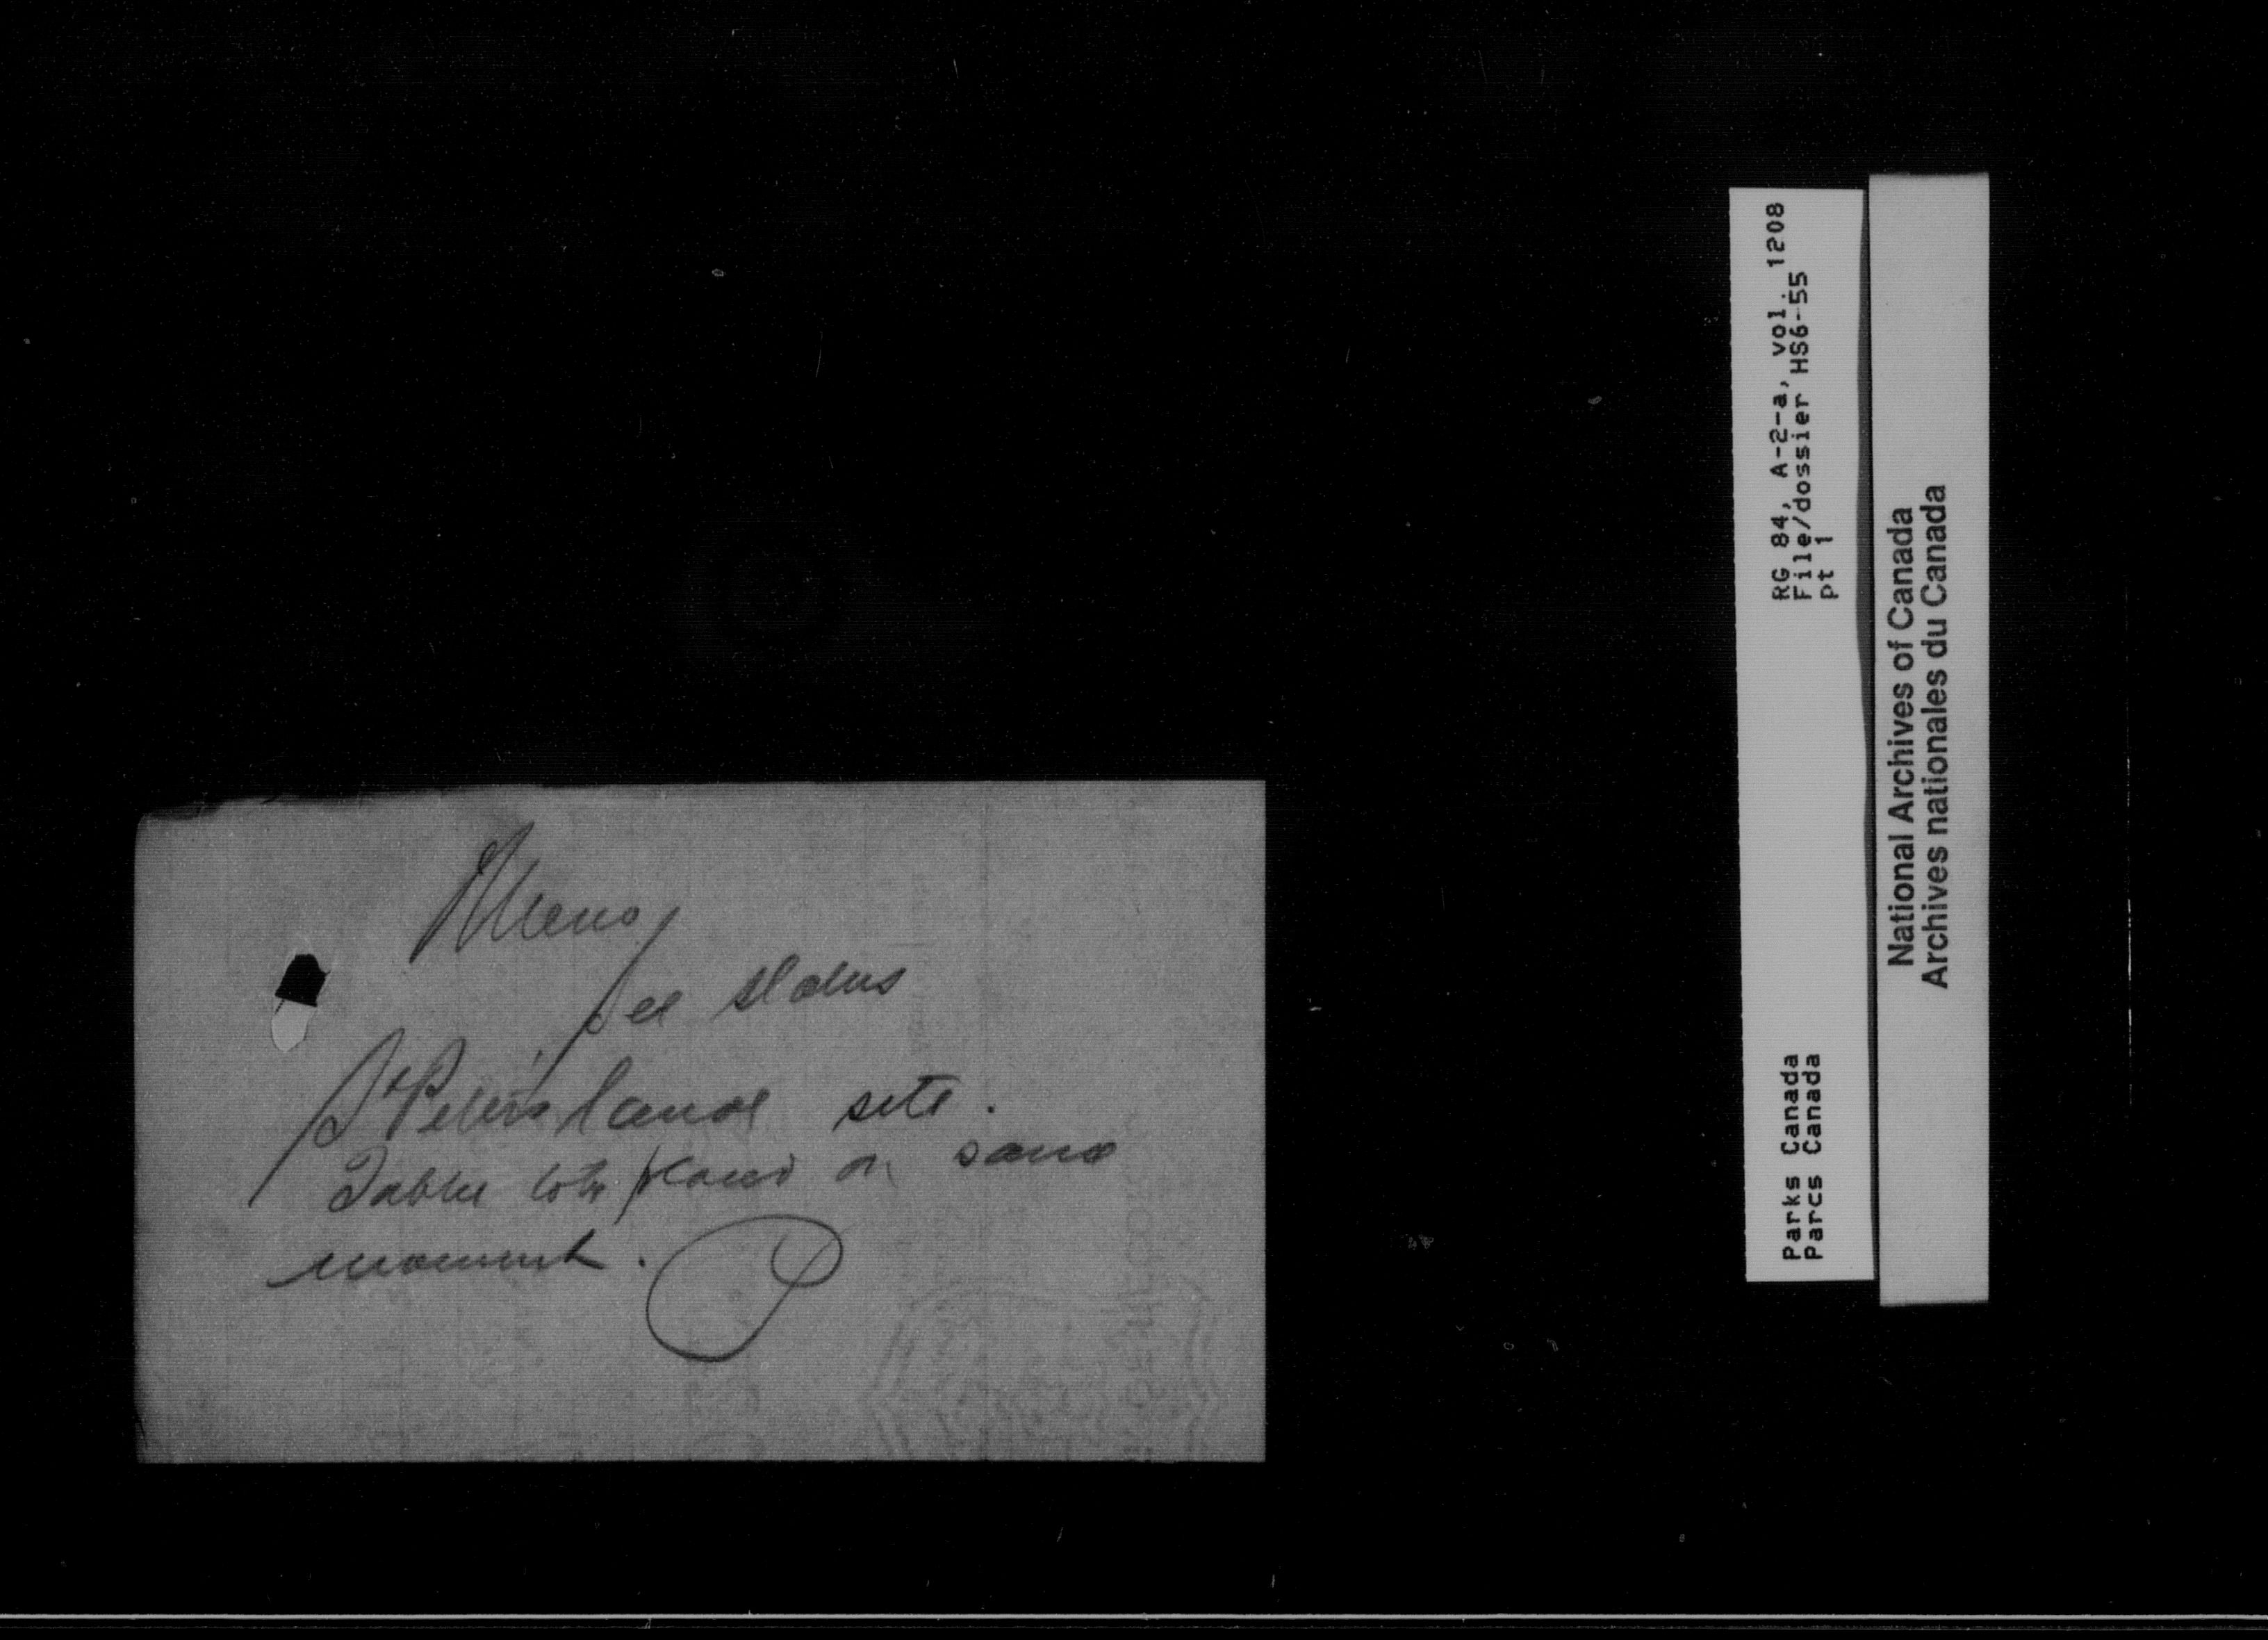 Memo
see status
St Peters Canal site.
Tablet to be placed on same
monument.
P
RG 84, A-2-a, vol. 1208
File/dossier HS6-55
pt 1
Parks Canada
Parcs Canada
National Archives of Canada
Archives nationales du Canada